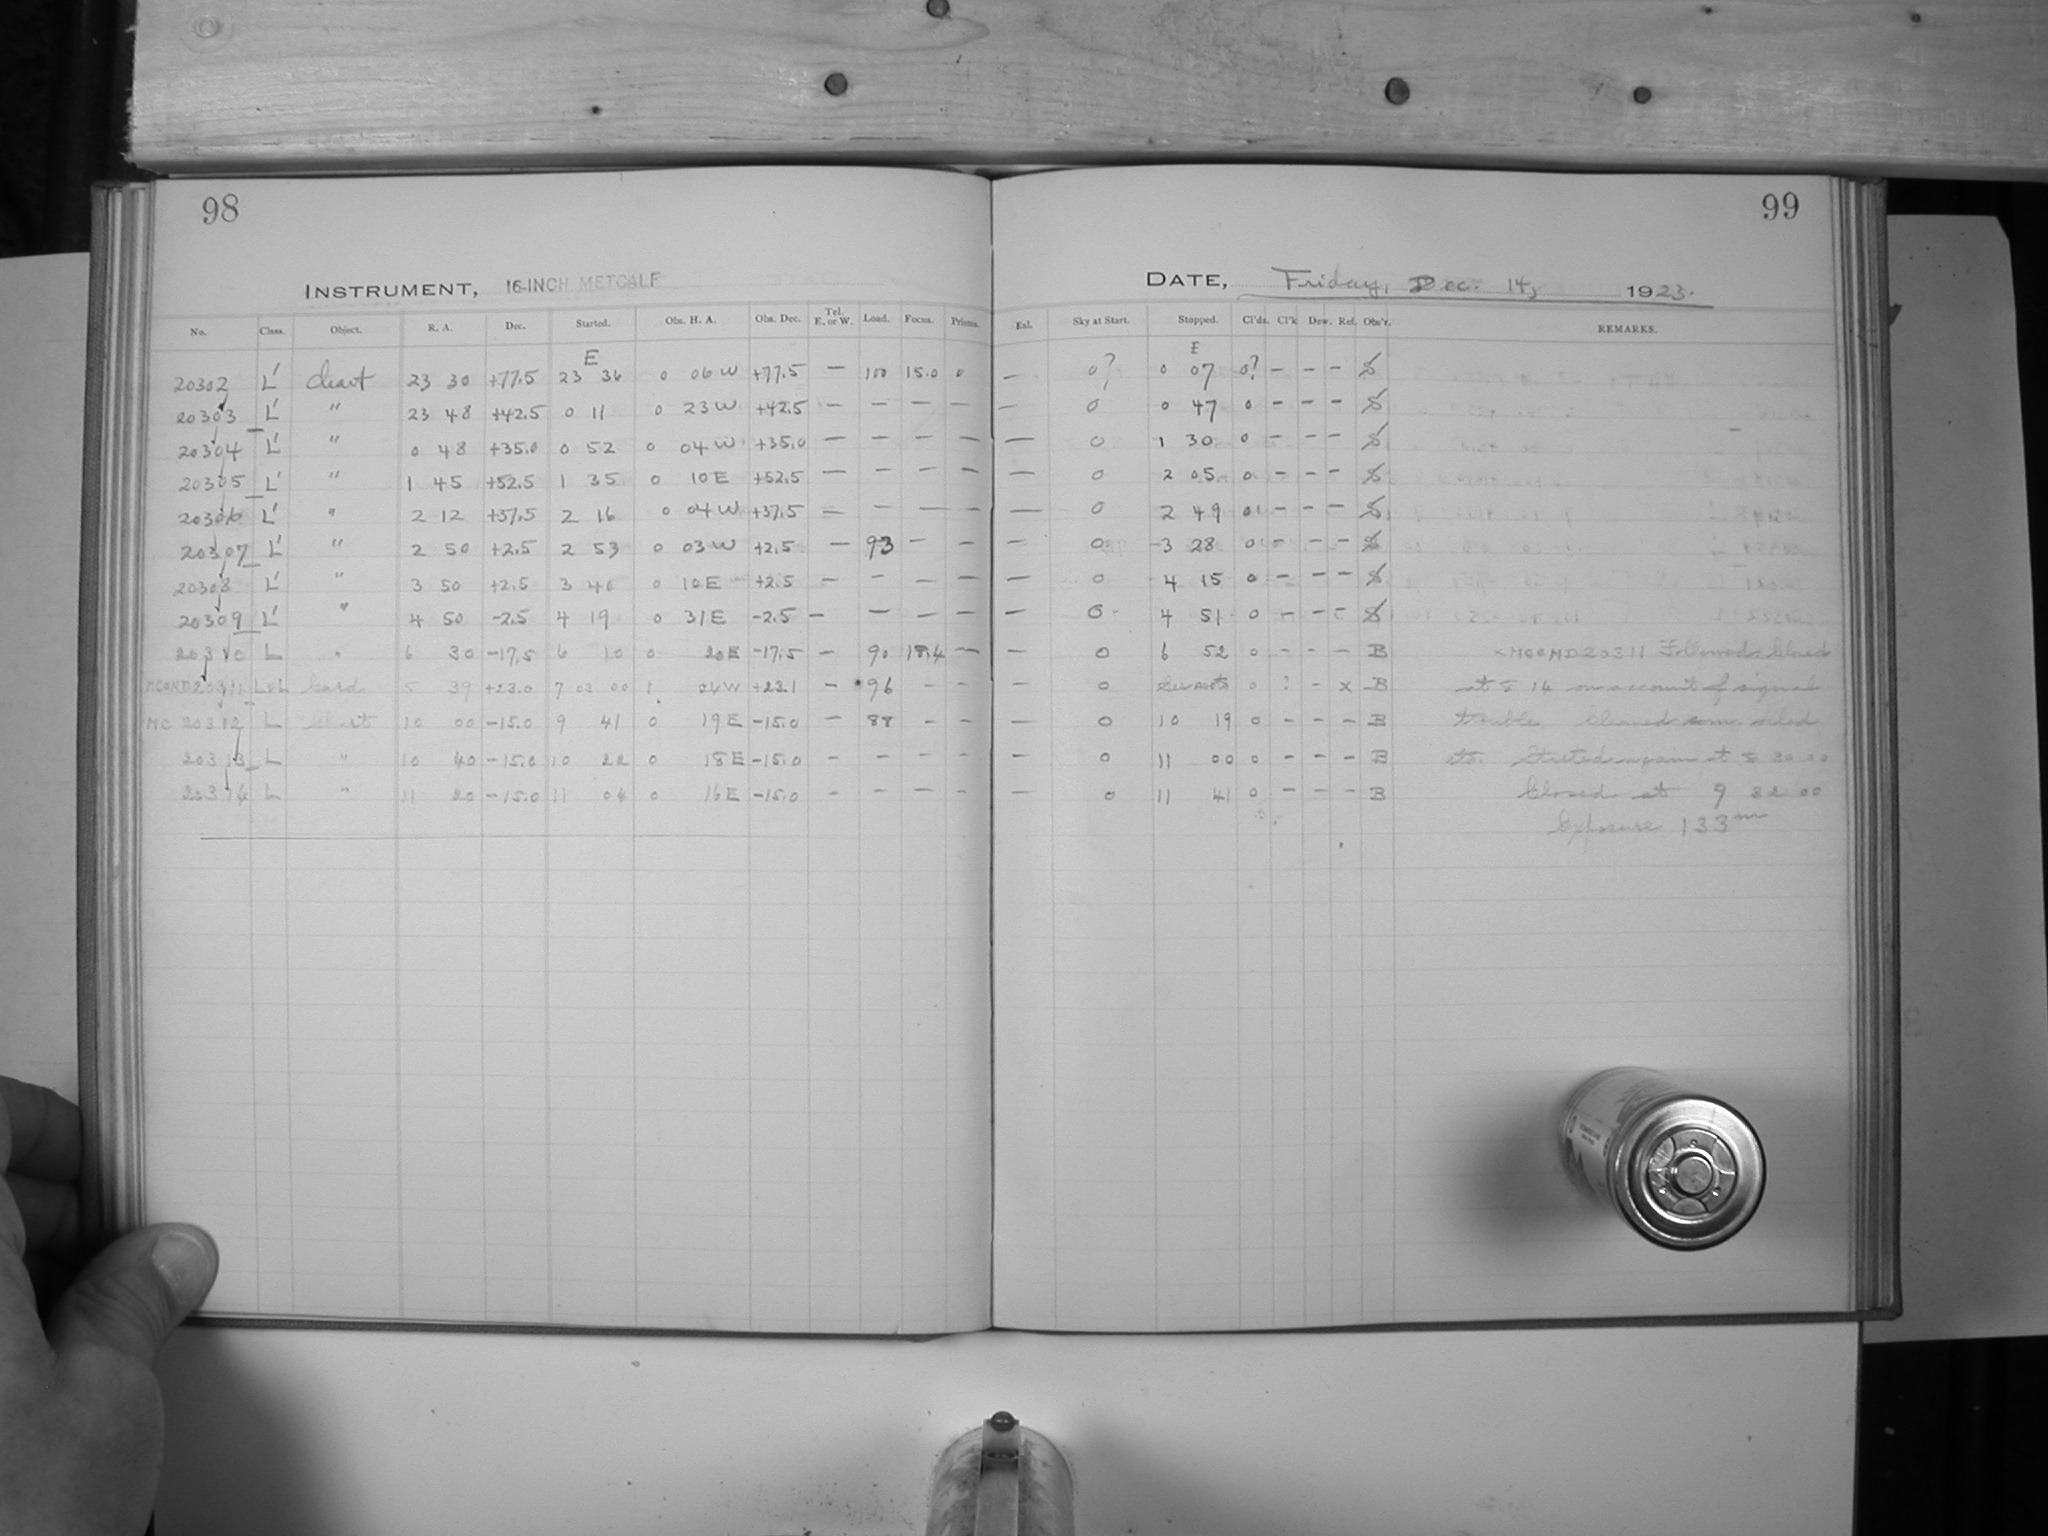 98
INSTRUMENT, 16-INCH METCALF
No. Class. Object. R. A. Dec. Started. Obs. H. A. Obs. Dec. Tel. E. or W. Load. Focus. Prisms.
E
20302 L' Chart 23 30 +77.5 23 36 0 06 W +77.5 — 100 15.0 0
20303 L' " 23 48 +42.5 0 11 0 23 W +42.5 — — — —
20304 L' " 0 48 +35.0 0 52 0 04 W +35.0 — — — —
20305 L' " 1 45 +52.5 1 35 0 10 E +52.5 — — — —
20306 L' " 2 12 +37.5 2 16 0 04 W +37.5 — — — —
20307 L' " 2 50 +2.5 2 53 0 03 W +2.5 — 93 — —
20308 L' " 3 50 +2.5 3 40 0 10 E +2.5 — — — —
20309 L' " 4 50 -2.5 4 19 0 31 E -2.5 — — — —
20310 L " 6 30 -17.5 6 10 0 20 E -17.5 — 90 18.4 —
MC&MD20311 L&L Card 5 39 +23.0 7 03 00 1 24 W +23.1 — 96 — —
MC 20312 L Chart 10 00 -15.0 9 41 0 19 E -15.0 — 88 — —
20313 L " 10 40 -15.0 10 22 0 18 E -15.0 — — — —
20314 L " 11 20 -15.0 11 04 0 16 E -15.0 — — — —
99
DATE, Friday, Dec. 14, 1923.
Eal. Sky at Start. Stopped. Cl'ds. Cl'k Dew. Ref. Obs'r. REMARKS.
E
— 0? 0 07 0? — — — S
— 0 0 47 0 — — — S
— 0 1 30 0 — — — S
— 0 2 05 0 — — — S
— 0 2 49 0 — — — S
— 0 3 28 0 — — — S
— 0 4 15 0 — — — S
— 0 4 51 0 — — — S
— 0 6 52 0 — — — B <MC&MD20311 Followed. Closed
— 0 0 ? — x B at 8 14 on account of signal
— 0 10 19 0 — — — B trouble. Cleaned
— 0 11 00 0 — — — B Started again at 8 30 00
— 0 11 41 0 — — — B Closed at 9 32 00
Exposure 133m